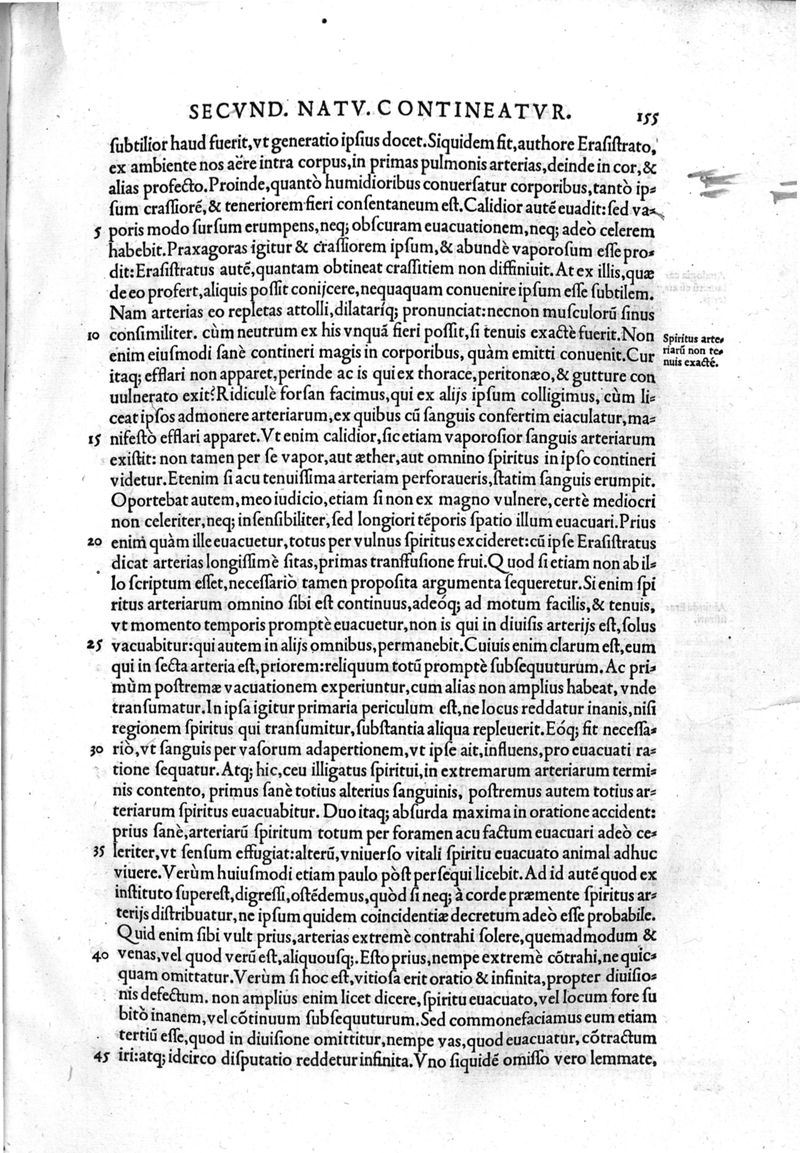 SECVND. NATV. CONTINEATVR. 155
ſubtilior haud fuerit, vt generatio ipſius docet. Siquidem fit, authore Eraſiſtrato,
ex ambiente nos aëre intra corpus, in primas pulmonis arterias, deinde in cor, &
alias profecto. Proinde, quantò humidioribus conuerſatur corporibus, tantò ip-
ſum craſſiorē, & teneriorem fieri conſentaneum eſt. Calidior autē euadit: ſed va-
5 poris modo ſurſum erumpens, neq; obſcuram euacuationem, neq; adeò celerem
habebit. Praxagoras igitur & craſſiorem ipſum, & abundè vaporoſum eſſe pro-
dit: Eraſiſtratus autē, quantam obtineat craſſitiem non diffiniuit. At ex illis, quæ
de eo profert, aliquis poſſit conijcere, nequaquam conuenire ipſum eſſe ſubtilem.
Nam arterias eo repletas attolli, dilatariq; pronunciat: necnon muſculorū ſinus
10 conſimiliter. cùm neutrum ex his vnquā fieri poſſit, ſi tenuis exactè fuerit. Non
enim eiuſmodi ſanè contineri magis in corporibus, quàm emitti conuenit. Cur
itaq; efflari non apparet, perinde ac is qui ex thorace, peritonæo, & gutture con
uulnerato exit? Ridiculè forſan facimus, qui ex alijs ipſum colligimus, cùm li-
ceat ipſos admonere arteriarum, ex quibus cū ſanguis confertim eiaculatur, ma-
15 nifeſtò efflari apparet. Vt enim calidior, ſic etiam vaporoſior ſanguis arteriarum
exiſtit: non tamen per ſe vapor, aut æther, aut omnino ſpiritus in ipſo contineri
videtur. Etenim ſi acu tenuiſſima arteriam perforaueris, ſtatim ſanguis erumpit.
Oportebat autem, meo iudicio, etiam ſi non ex magno vulnere, certè mediocri
non celeriter, neq; inſenſibiliter, ſed longiori tēporis ſpatio illum euacuari. Prius
20 enim quàm ille euacuetur, totus per vulnus ſpiritus excideret: cū ipſe Eraſiſtratus
dicat arterias longiſſimè ſitas, primas tranſfuſione frui. Quod ſi etiam non ab il-
lo ſcriptum eſſet, neceſſariò tamen propoſita argumenta ſequeretur. Si enim ſpi
ritus arteriarum omnino ſibi eſt continuus, adeóq; ad motum facilis, & tenuis,
vt momento temporis promptè euacuetur, non is qui in diuiſis arterijs eſt, ſolus
25 vacuabitur: qui autem in alijs omnibus, permanebit. Cuiuis enim clarum eſt, eum
qui in ſecta arteria eſt, priorem: reliquum totū promptè ſubſequuturum. Ac pri-
mùm poſtremæ vacuationem experiuntur, cum alias non amplius habeat, vnde
tranſumatur. In ipſa igitur primaria periculum eſt, ne locus reddatur inanis, niſi
regionem ſpiritus qui tranſumitur, ſubſtantia aliqua repleuerit. Eóq; fit neceſſa-
30 riò, vt ſanguis per vaſorum adapertionem, vt ipſe ait, influens, pro euacuati ra-
tione ſequatur. Atq; hic, ceu illigatus ſpiritui, in extremarum arteriarum termi-
nis contento, primus ſanè totius alterius ſanguinis, poſtremus autem totius ar-
teriarum ſpiritus euacuabitur. Duo itaq; abſurda maxima in oratione accident:
prius ſanè, arteriarū ſpiritum totum per foramen acu factum euacuari adeò ce-
35 leriter, vt ſenſum effugiat: alterū, vniuerſo vitali ſpiritu euacuato animal adhuc
viuere. Verùm huiuſmodi etiam paulo pòſt perſequi licebit. Ad id autē quod ex
inſtituto ſupereſt, digreſſi, oſtēdemus, quòd ſi neq; à corde præmente ſpiritus ar-
terijs diſtribuatur, ne ipſum quidem coincidentiæ decretum adeò eſſe probabile.
Quid enim ſibi vult prius, arterias extremè contrahi ſolere, quemadmodum &
40 venas, vel quod verū eſt, aliquouſq;. Eſto prius, nempe extremè cōtrahi, ne quic-
quam omittatur. Verùm ſi hoc eſt, vitioſa erit oratio & infinita, propter diuiſio-
nis defectum. non amplius enim licet dicere, ſpiritu euacuato, vel locum fore ſu
bitò inanem, vel cōtinuum ſubſequuturum. Sed commonefaciamus eum etiam
tertiū eſſe, quod in diuiſione omittitur, nempe vas, quod euacuatur, cōtractum
45 iri: atq; idcirco diſputatio reddetur infinita. Vno ſiquidē omiſſo vero lemmate,
Spiritus arte-
riarū non te-
nuis exactè.